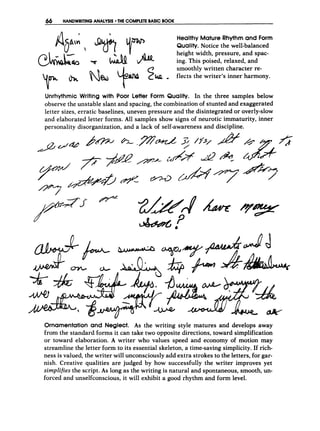 66 HANDWRITING ANALYSIS • THE COMPLETE BASIC BOOK
Again, Enjoy your
Christmas + Well and
your on New Years Eve.
Healthy Mature Rhythm and Form
Quality. Notice the well-balanced
height width, pressure, and spac-
ing. This poised, relaxed, and
smoothly written character re-
flects the writer's inner harmony.
Unrhythmic Writing with Poor Letter Form Quality. In the three samples below
observe the unstable slant and spacing, the combination of stunted and exaggerated
letter sizes, erratic baselines, uneven pressure and the disintegrated or overly-slow
and elaborated letter forms. All samples show signs of neurotic immaturity, inner
personality disorganization, and a lack of self-awareness and discipline.
was born on March 3, 1931
Will I have money
soon?
About four summers ago, my parents and I
went on a trip from
to the Florida Keys. During our journey
we
weather.
Ornamentation and Neglect. As the writing style matures and develops away
from the standard forms it can take two opposite directions, toward simplification
or toward elaboration. A writer who values speed and economy of motion may
streamline the letter form to its essential skeleton, a time-saving simplicity. If rich-
ness is valued, the writer will unconsciously add extra strokes to the letters, for gar-
nish. Creative qualities are judged by how successfully the writer improves yet
simplifies the script. As long as the writing is natural and spontaneous, smooth, un-
forced and unselfconscious, it will exhibit a good rhythm and form level.